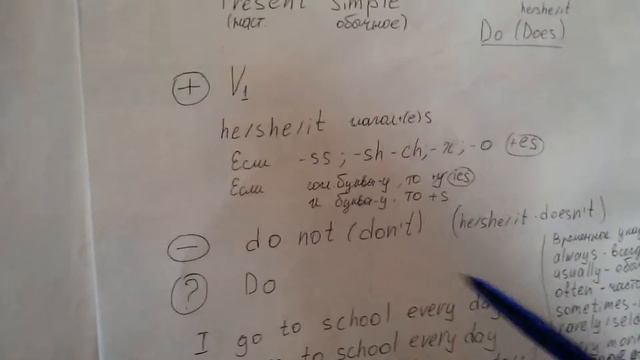 Present Simple
(наст. обычное)
he/she/it
Do (Does)
+ V1
he/she/it глагол+(e)s
Если -ss; -sh -ch, -x; -o (+es)
Если согл. буква-y, то ies
буква-y. то +s
- do not (don't) (he/she/it - doesn't)
? Do
Временное
always -
usually -
often -
sometimes -
I go to school every day
to school every day